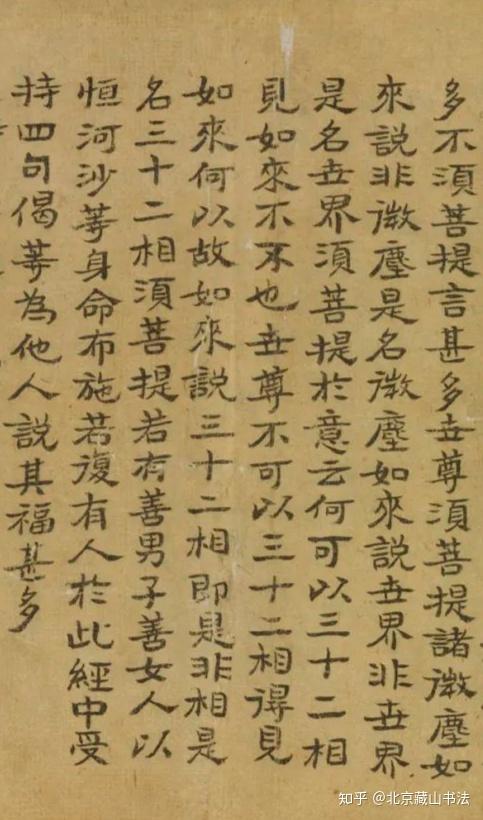 多不須菩提言甚多世尊須菩提諸微塵如
來說非微塵是名微塵如來說世界非世界
是名世界須菩提於意云何可以三十二相
見如來不不也世尊不可以三十二相得見
如來何以故如來說三十二相即是非相是
名三十二相須菩提若有善男子善女人以
恒河沙等身命布施若復有人於此經中受
持四句偈等為他人說其福甚多
知乎 @北京藏山书法